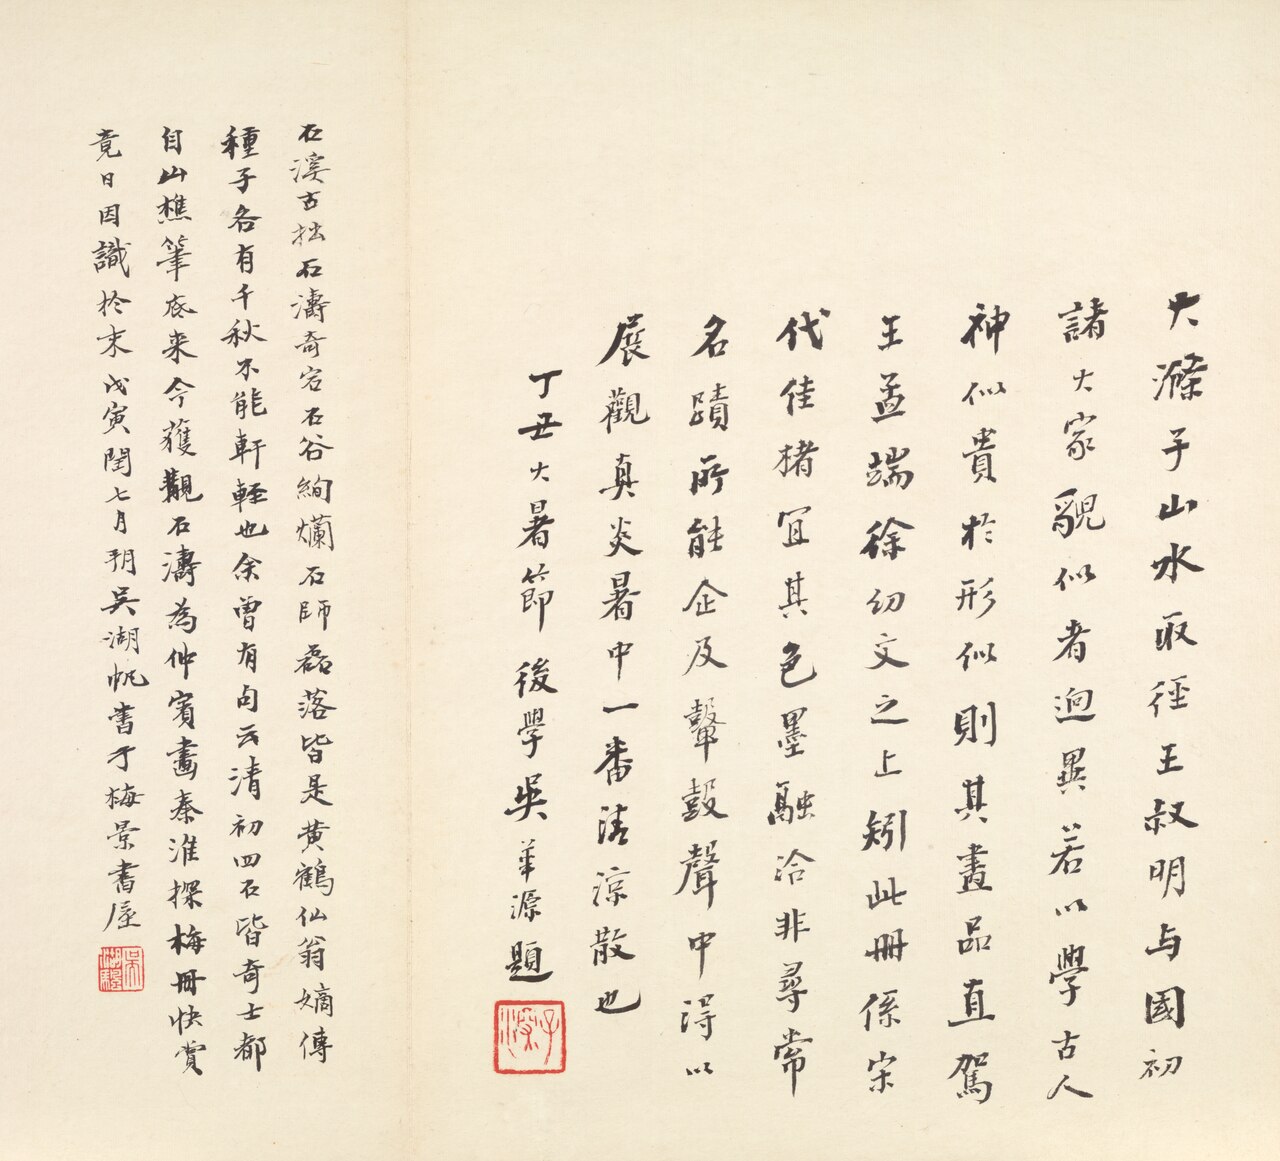 大滌子山水取徑王叔明与國初
諸大家貌似者迥異若以學古人
神似貴於形似則其畫品直駕
王孟端徐幼文之上矧此冊係宋
代佳楮宜其色墨融洽非尋常
名蹟所能企及鼙鼓聲中得以
展觀真炎暑中一番清涼散也
丁丑大暑節後學吳華源題
石溪古拙石濤奇宕石谷絢爛石師磊落皆是黃鶴仙翁嫡傳
種子各有千秋不能軒輊也余曾有句云清初四石皆奇士都
自山樵筆底来今獲觀石濤為仲賓畫秦淮探梅冊快賞
竟日因識於末戊寅閏七月朔吳湖帆書于梅景書屋
吳湖颿
子深